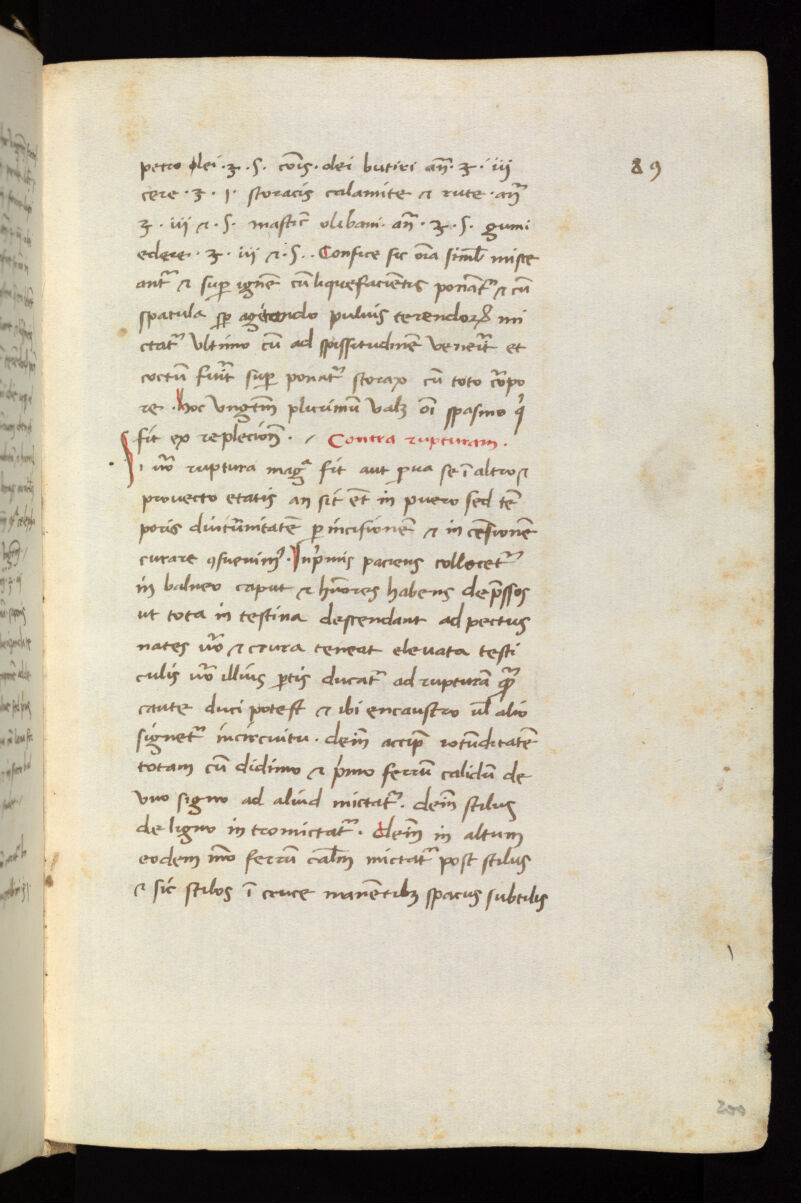 petro olei · ʒ · s̄ · cōis · olei butiri an̄ · ʒ · iii
89
cere · ʒ · i · storacis calamite ⁊ rute · an̄
ʒ · iii ⁊ · s̄ · mastic̄ olibani · an̄ · ʒ · s̄ · gumi
edere · ʒ · iii ⁊ · s̄ · Confice sic oīa siml̄ misce
ant᷑ ⁊ sup ignē cū liquefacientis ponāt᷑ ⁊ cū
spatula sp̄ agitando puluis terendoꝝ mi
ctat᷑ Vltimo cū ad spissitudinē venerīt et
coctū fuīt sup ponat᷑ storax cū toto corpo
re · Hoc Vngtm̄ plurimū valꝫ oī spasmo q̇
fit ex replecion̄ · Contra rupturam ·
Si u̇o ruptura magͣ fit aut p̱ua se ī altro ⁊
prouecto etatis an sit et̄ in puero sed tē
poris diuturnitatē p̱ incisionē ⁊ in cēsionē
curare ꝯsueuimꝰ · Inp̱mis paciens collocet᷑
in balneo caput ⁊ hūores habens dep̄ssos
ut tota in testina descendant ad pectus
nates u̇o ⁊ crura teneat eleuata testi
culis u̇o illius p̱tis ducat᷑ ad rupturā
caute duci potest ⁊ ibi encaustro ul̄ alio
signet᷑ incircuitu · dein̄ accip̱e rotūditatē
totam cū didimo ⁊ p̱mo ferrū calidū de
vno signo ad aliud mictat᷑ · dein̄ stilus
de ligno in tromictat᷑ · dein̄ in altum
eodem mō ferrū cal̄m mictat᷑ post stilus
⁊ sic stilos ī cruce manētibꝫ spacus subtilis
200